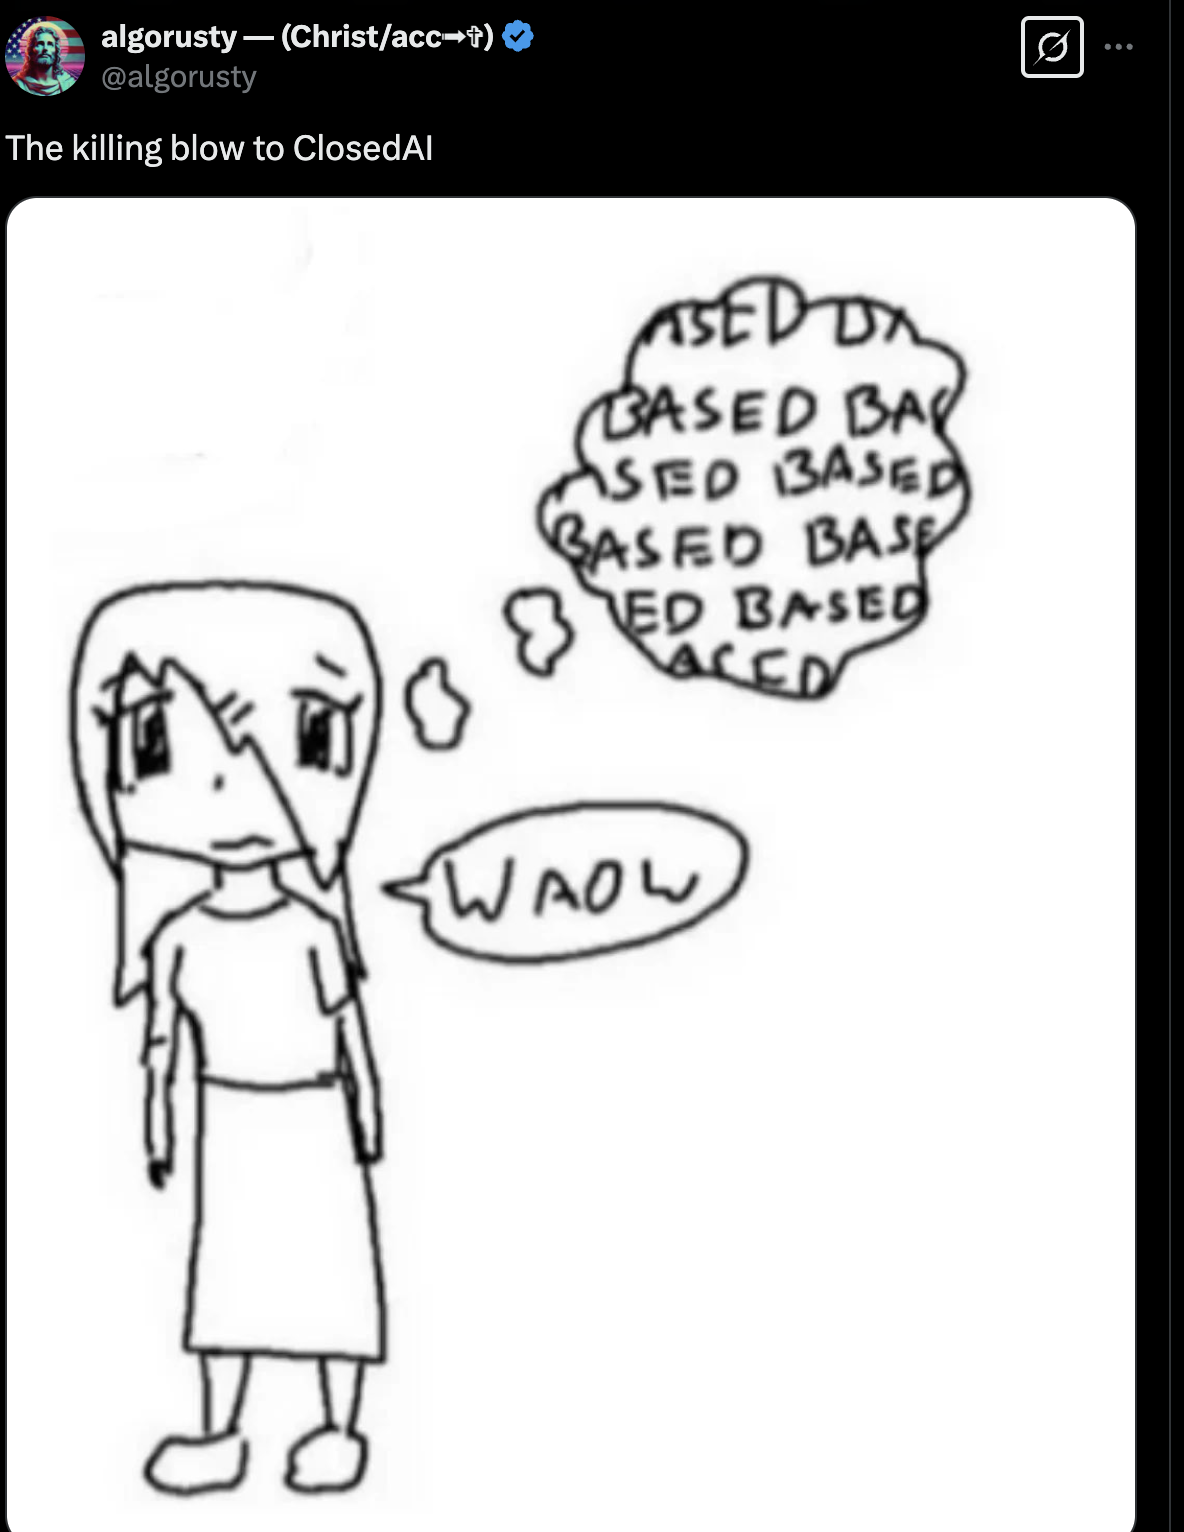 algorusty — (Christ/acc➡✞)
@algorusty
The killing blow to ClosedAI
ASED BA
BASED BAS
ASED BASED
BASED BASE
ED BASED
ASED
WAOW